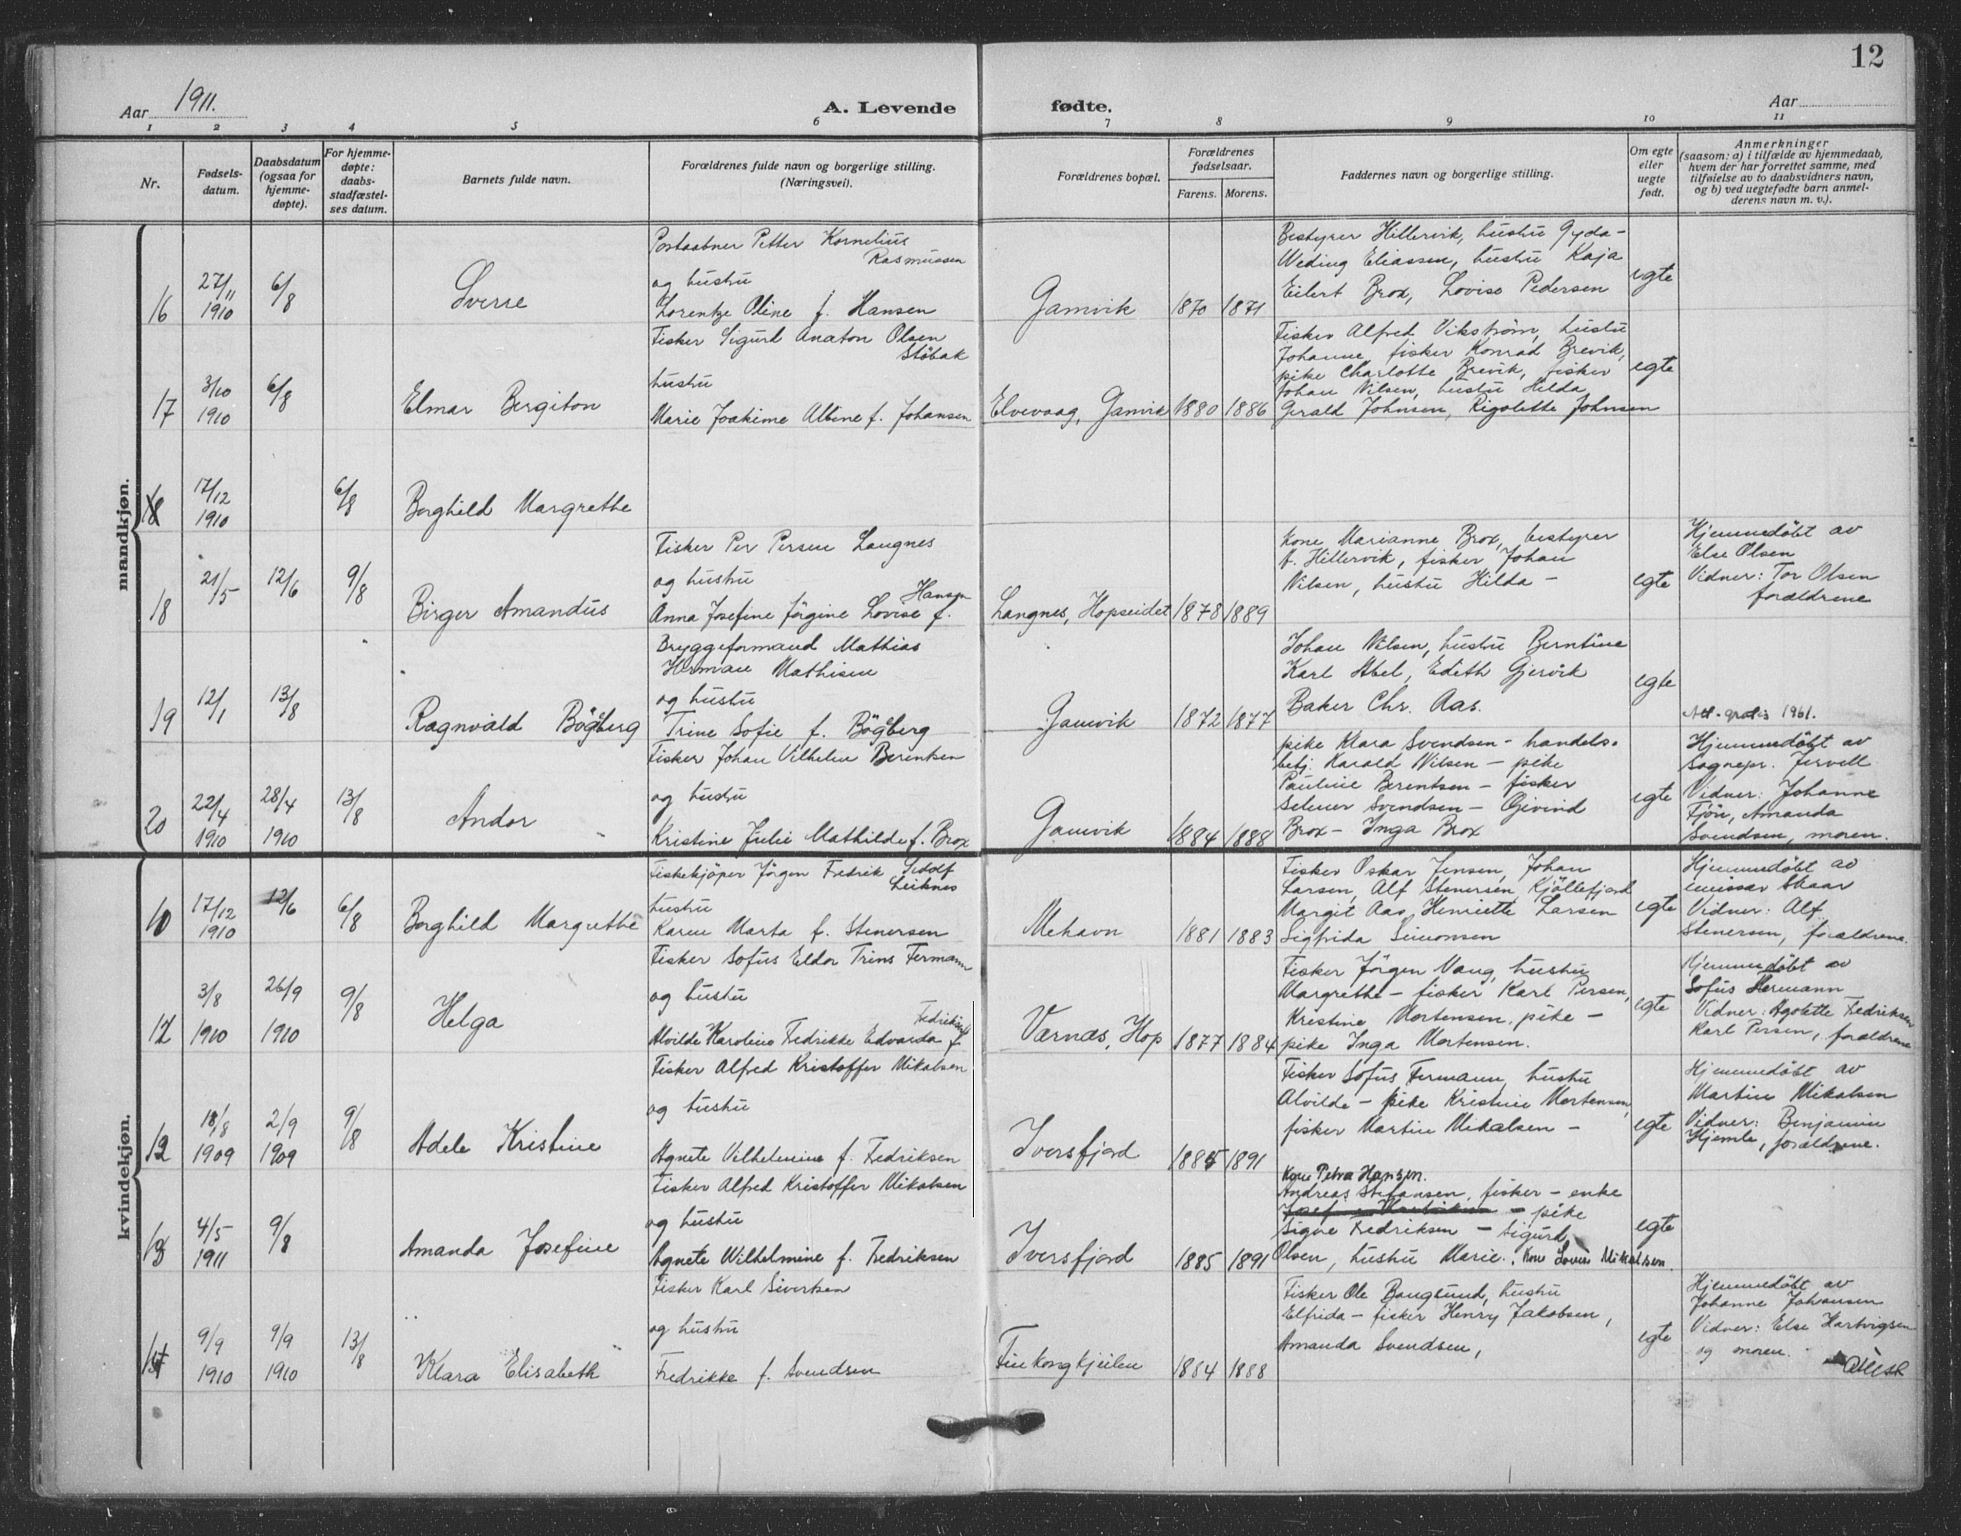 12
Aar 1911.
A. Levende fødte.
Aar
1 2 3 4 5 6 7 8 9 10 11
Nr.
Fødsels-
datum.
Daabsdatum
(ogsaa for
hjemme-
døpte).
For hjemme-
døpte:
daabs-
stadfæstel-
ses datum.
Barnets fulde navn.
Forældrenes fulde navn og borgerlige stilling.
(Næringsvei).
Forældrenes bopæl.
Forældrenes
fødselsaar.
Farens. Morens.
Faddernes navn og borgerlige stilling.
Om egte
eller
uegte
født.
Anmerkninger
(saasom: a) i tilfælde av hjemmedaab,
hvem der har forrettet samme, med
tilføielse av to daabsvidners navn,
og b) ved uegtefødte barn anmel-
derens navn m. v.).
mandkjøn.
16
27/11
1910
6/8
Sverre
Postaabner Petter Kornelius
Rasmussen
og hustru
Lorentze Oline f. Hansen
Gamvik
1870 1871
Bestyrer Hillervik, hustru Gyda -
Weding Eliassen, hustru Kaja
Eilert Brox, Lovise Pedersen
egte
17
3/10
1910
6/8
Elmar Bergiton
Fisker Sigurd Anaton Olsen
Støbak
hustru
Marie Joakime Albine f. Johansen
Elvevaag, Gamvik
1880 1886
Fisker Alfred Vikstrøm, hustru
Johanne, fisker Konrad Brevik,
pike Charlotte Brevik, fisker
Johan Nilsen, hustru Hilda,
Gerald Johnsen, Rigolette Johnsen
egte
18
17/12
1910
6/8
Borghild Margrethe
18
21/5
12/6
9/8
Birger Amandus
Fisker Per Persen Langnes
og hustru
Hansen
Anna Josefine Jørgine Lovise f.
Langnes, Hopseidet
1878 1889
Kone Marianne Brox, bestyrer
f. Hillervik, fisker Johan
Nilsen, hustru Hilda -
egte
Hjemmedöbt av
Else Olsen
Vidner: Tor Olsen
forældrene
19
12/1
13/8
Ragnvald Bögberg
Bryggeformand Mathias
Herman Mathisen
og hustru
Trine Sofie f. Bögberg
Gamvik
1872 1877
Johan Nilsen, hustru Berntine
Karl Abel, Edith Gjervik
Baker Chr. Aas.
egte
Att. gratis 1961.
20
22/4
1910
28/4
1910
13/8
Andor
Fisker Johan Vilhelm Berentsen
og hustru
Kristine Julie Mathilde f. Brox
Gamvik
1884 1888
pike Klara Svendsen - handels-
betj. Harald Nilsen - pike
Pauline Berentsen - fisker
Selmer Svendsen - Eivind
Brox - Inga Brox
egte
Hjemmedöbt av
Sognepr. Jervell
Vidner: Johanne
Fjön, Amanda
Svendsen, moren.
kvindekjøn.
10
17/12
1910
12/6
6/8
Borghild Margrethe
Fiskekjöper Jörgen Fredrik Sidolf
Leiknes
hustru
Karen Marta f. Stenersen
Mehavn
1881 1883
Fisker Oskar Jensen, Johan
Larsen, Alf Stenersen Kjöllefjord
Margit Aas, Henriette Larsen
Sigfrida Simonsen
egte
Hjemmedöbt av
emissær Skaar
Vidner: Alf
Stenersen, forældrene.
12
3/8
1910
26/9
1910
9/8
Helga
Fisker Sofus Eldor Trins Fermann
og hustru
Fredriksen
Alvilde Karoline Fredrikke Edvarda f.
Værnæs, Hop
1877 1884
Fisker Jörgen Vang, hustru
Margrethe - fisker Karl Persen,
Kristine Mortensen, pike -
pike Inga Mortensen.
egte
Hjemmedöbt av
Sofus Hermann
Vidner: Agolette Fredriksen
Karl Persen, forældrene
12
18/8
1909
2/9
1909
9/8
Adele Kristine
Fisker Alfred Kristoffer Mikalsen
og hustru
Agnete Vilhelmine f. Fredriksen
Iversfjord
1885 1891
Fisker Sofus Fermann, hustru
Alvilde - pike Kristine Mortensen,
fisker Martin Mikalsen -
egte
Hjemmedöbt av
Martin Mikalsen
Vidner: Benjamin
Hjemle, forældrene.
13
4/5
1911
9/8
Amanda Josefine
Fisker Alfred Kristoffer Mikalsen
og hustru
Agnete Wilhelmine f. Fredriksen
Iversfjord
1885 1891
Kone Petra Hansen.
Andreas Stefansen, fisker - enke
- pike
Signe Fredriksen - Sigurd
Olsen, hustru Marie. Kone Lovise Mikalsen.
egte
14
9/9
1910
9/9
1910
13/8
Klara Elisabeth
Fisker Karl Sivertsen
og hustru
Fredrikke f. Svendsen
Finkongkjeilen
1884 1888
Fisker Ole Bangsund, hustru
Elfrida - fisker Henry Jakobsen,
Amanda Svendsen,
egte
Hjemmedöbt av
Johanne Johansen
Vidner: Else Hartvigsen
og moren.
Attest